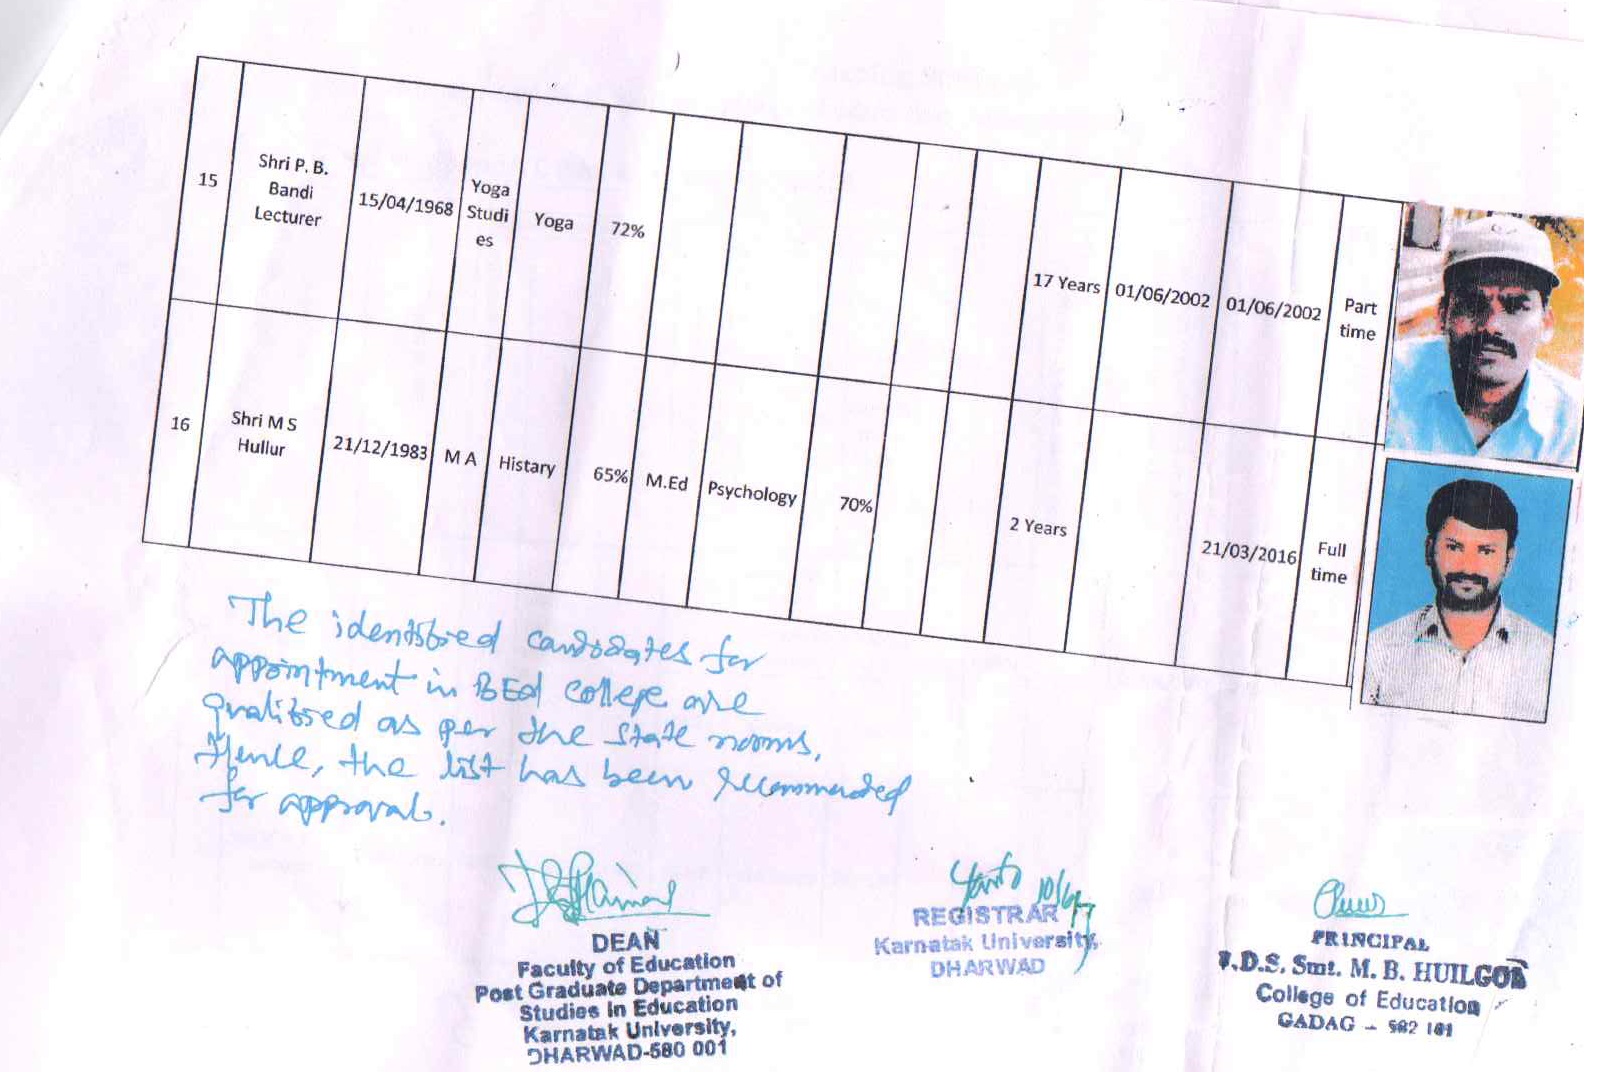 15 Shri P. B. Bandi Lecturer 15/04/1968 Yoga Studi es Yoga 72% 17 Years 01/06/2002 01/06/2002 Part time
16 Shri M S Hullur 21/12/1983 M A Histary 65% M.Ed Psychology 70% 2 Years 21/03/2016 Full time
The identified candidates for
appointment in BEd college are
qualified as per the state norms,
Hence, the list has been recommended
for approval.
DEAN
Faculty of Education
Post Graduate Department of
Studies in Education
Karnatak University,
DHARWAD-580 001
REGISTRAR
Karnatak University,
DHARWAD
PRINCIPAL
.D.S. Smt. M. B. HUILGOL
College of Education
GADAG - 582 101